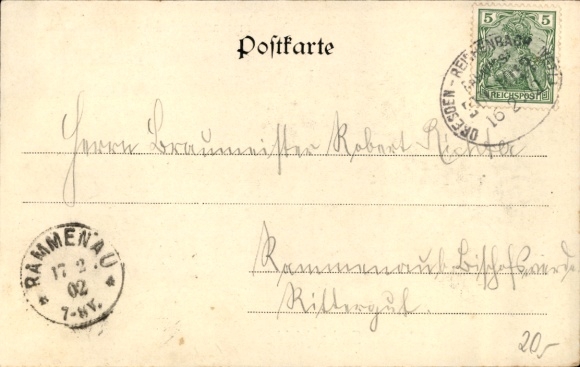 Postkarte
5 5
REICHSPOST
DRESDEN - REICHENBACH
16 2
Herrn Braumeister Robert Richter
RAMMENAU
17 2
02
7-8V.
Rammenau b. Bischofswerda
Rittergut.
20,-